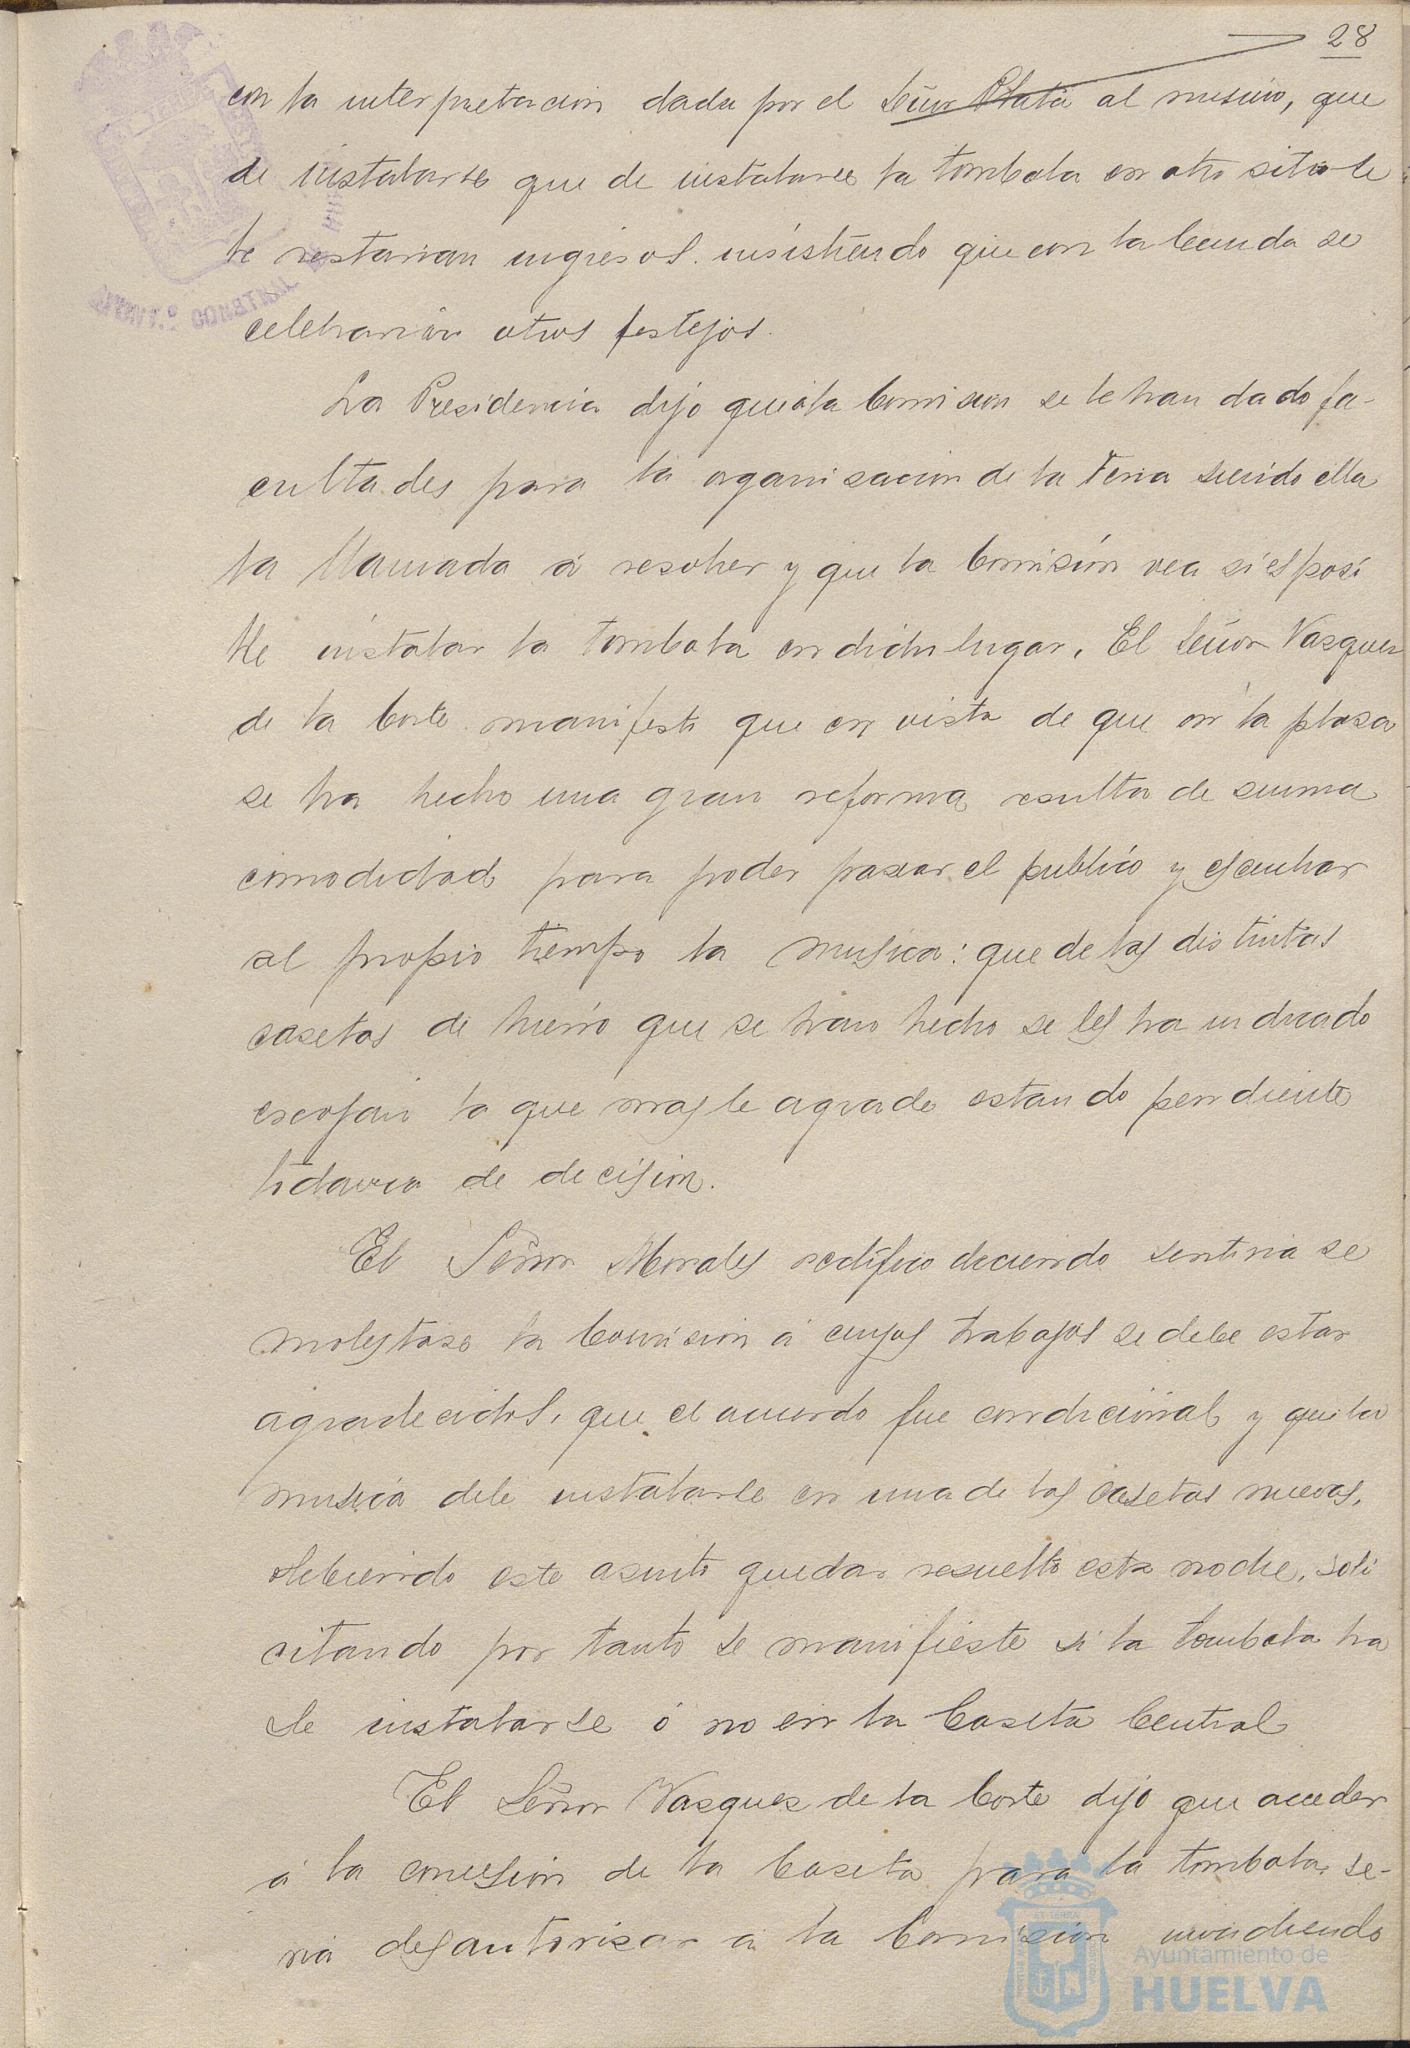 28
con la interpretación dada por el Señor Plata al mismo, que
de instalarse que de instalarse la tombola en otro sitio se
le restarian ingresos. insistiendo que con la banda se
celebrarian otros festejos.
La Presidencia dijo que a la Comision se le han dado fa-
cultades para la organisacion de la Feria siendo ella
la llamada á resolver y que la Comisión vea si es posi
ble instalar la tombola en dicho lugar. El Señor Vasquez
de la Corte manifestó que en vista de que en la plasa
se ha hecho una gran reforma, resulta de suma
comodidad para poder pasear el publico y escuchar
al propio tiempo la musica: que de las distintas
casetas de hierro que se han hecho se les ha indicado
escojan la que mas le agrade estando pendiente
todavia de decisión.
El Señor Morales rectifico diciendo sentiria se
molestase la Comisión á cuyos trabajos se debe estar
agradecidos, que el acuerdo fue condicional y que la
musica debe instalarse en una de las casetas nuevas,
debiendo este asunto quedar resuelto esta noche, soli
citando por tanto se manifieste si la tombola ha
de instalarse ó no en la Caseta Central
El Señor Vasques de la Corte dijo que acceder
á la concesión de la Caseta para la tombola, se-
ria desautorisar a la Comisión
Ayuntamiento de
HUELVA